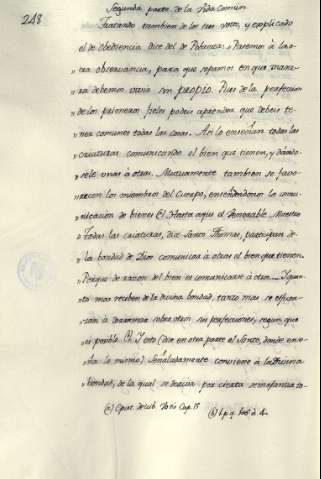 248
Segunda parte de la Vida Comun
Tratando tambien de los tres votos, y explicado
el de obediencia dice del de Pobreza: "Pasemos à la o-
"tra observancia, para que sepamos en que mane-
"ra debemos vivir sin proprio. Pues de la perfeccion
"de los primeros fieles podeis aprender que debeis te-
"ner comunes todas las cosas. Asi lo enseñan todas las
"criaturas comunicando el bien que tienen, y dando-
"sele unas à otras. Mutuamente tambien se favo-
"recen los miembros del Cuerpo, enseñandonos la comu-
"nicacion de bienes. El Hasta aqui el Venerable Maestro
"Todas las criaturas, dice Santo Thomas, participan de
"la bondad de Dios comunicar à otras el bien que tienen.
"Porque de razon del bien es comunicarse à otros... Y quan-
"to mas reciben de la divina bondad, tanto mas se esfuer-
"zan à derramar sobre otros sus perfecciones, segun que
"es posible (b) Y esto (dice en otra parte el Santo, donde ense-
"ña lo mismo) señaladamente conviene à la Divina
"bondad, de la qual se deriva por cierta semejanza to-
(a) Cap. 15
(b) 1. p. q. à 4.